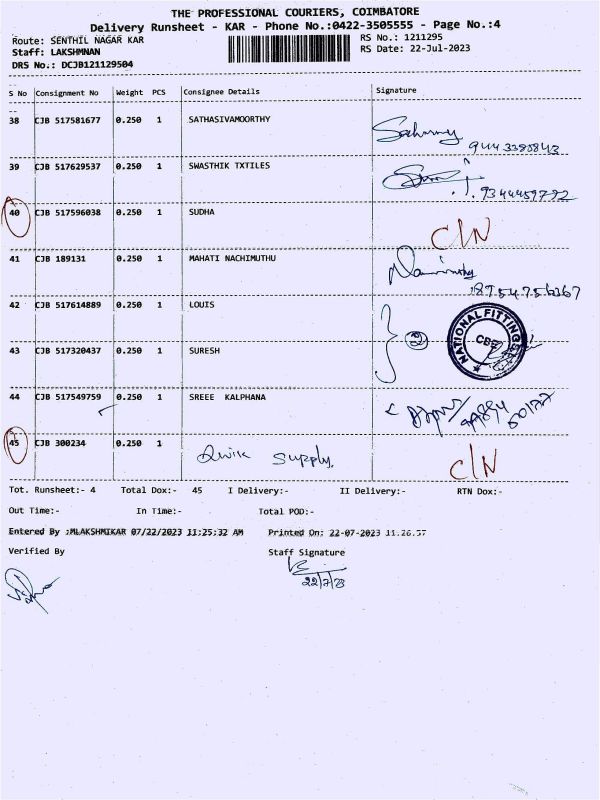 THE PROFESSIONAL COURIERS, COIMBATORE
Delivery Runsheet - KAR - Phone No.:0422-3505555 - Page No.:4
Route: SENTHIL NAGAR KAR
RS No.: 1211295
Staff: LAKSHMNAN
RS Date: 22-Jul-2023
DRS No.: DCJB121129504
S No Consignment No Weight PCS Consignee Details Signature
38 CJB 517581677 0.250 1 SATHASIVAMOORTHY
39 CJB 517629537 0.250 1 SWASTHIK TXTILES
9344459792
40 CJB 517596038 0.250 1 SUDHA
C/N
41 CJB 189131 0.250 1 MAHATI NACHIMUTHU
42 CJB 517614889 0.250 1 LOUIS
2
NATIONAL FITTINGS
CBE
43 CJB 517320437 0.250 1 SURESH
44 CJB 517549759 0.250 1 SREEE KALPHANA
45 CJB 300234 0.250 1
Supply.
C/N
Tot. Runsheet:- 4 Total Dox:- 45 I Delivery:- II Delivery:- RTN Dox:-
Out Time:- In Time:- Total POD:-
Entered By :MLAKSHMIKAR 07/22/2023 11:25:32 AM Printed On: 22-07-2023 11.26.57
Verified By Staff Signature
22/7/23